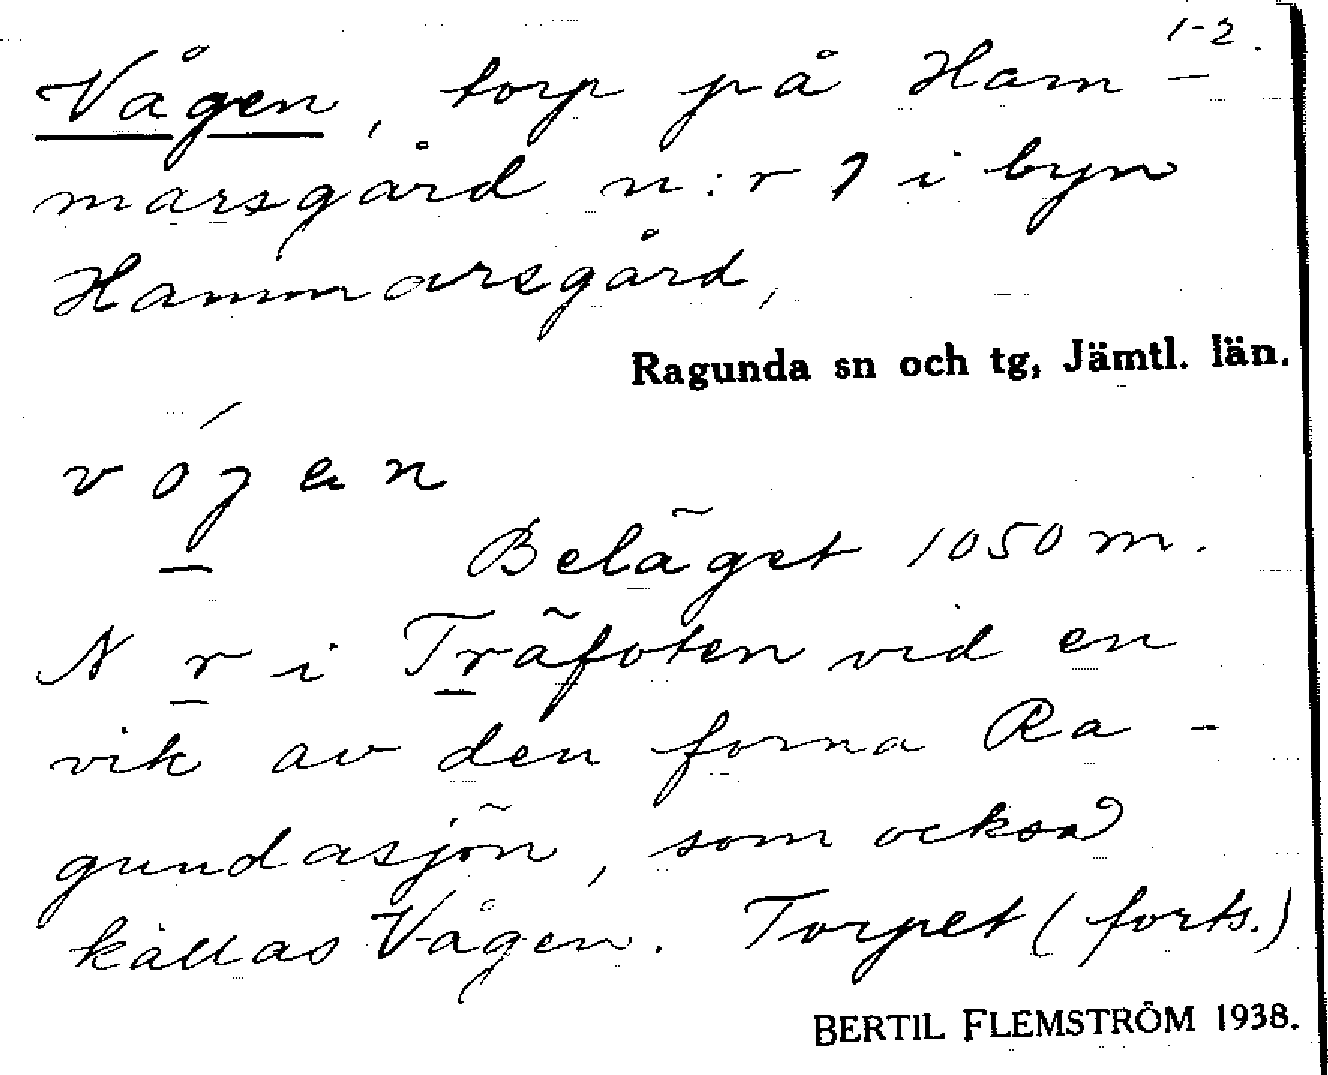 1-2.
Vågen, torp på Ham-
marsgård n:r 7 i byn
Hammarsgård,
Ragunda sn och tg, Jämtl. län.
Beläget 1050 m.
N r i Träfoten vid en
vik av den forna Ra-
gundasjön, som också
kallas Vågen. Torpet (forts.)
BERTIL FLEMSTRÖM 1938.